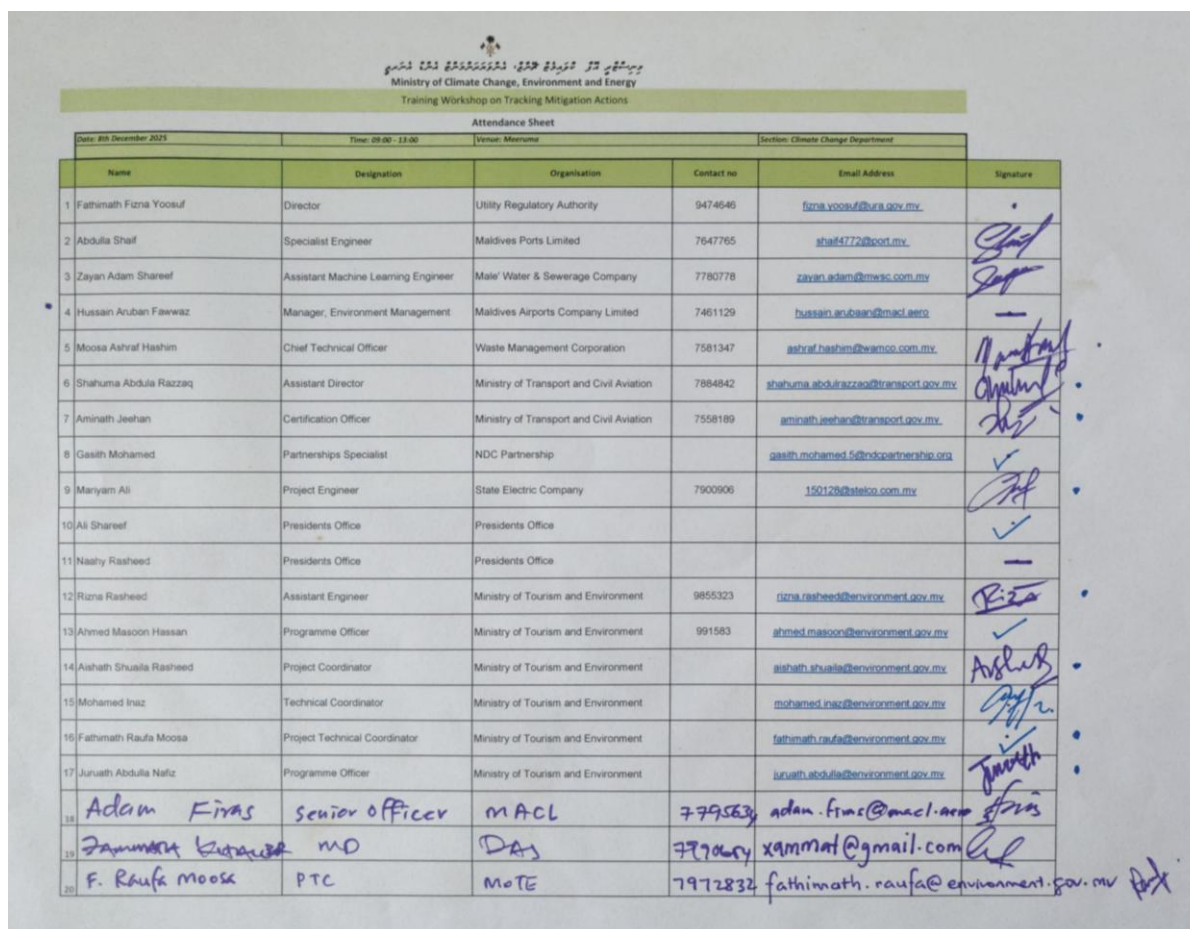 މިނިސްޓްރީ އޮފް ކްލައިމެޓް ޗޭންޖް، އެންވަޔަރަންމަންޓް އެންޑް އެނަރޖީ
Ministry of Climate Change, Environment and Energy
Training Workshop on Tracking Mitigation Actions
Attendance Sheet
Date: 8th December 2025 Time: 09:00 - 13:00 Venue: Meeruma Section: Climate Change Department
Name Designation Organisation Contact no Email Address Signature
1 Fathimath Fizna Yoosuf Director Utility Regulatory Authority 9474646 fizna.yoosuf@ura.gov.mv
2 Abdulla Shaif Specialist Engineer Maldives Ports Limited 7647765 shaif4772@port.mv
3 Zayan Adam Shareef Assistant Machine Learning Engineer Male' Water & Sewerage Company 7780778 zayan.adam@mwsc.com.mv
4 Hussain Aruban Fawwaz Manager, Environment Management Maldives Airports Company Limited 7461129 hussain.arubaan@macl.aero
5 Moosa Ashraf Hashim Chief Technical Officer Waste Management Corporation 7581347 ashraf.hashim@wamco.com.mv
6 Shahuma Abdula Razzaq Assistant Director Ministry of Transport and Civil Aviation 7884842 shahuma.abdulrazzaq@transport.gov.mv
7 Aminath Jeehan Certification Officer Ministry of Transport and Civil Aviation 7558189 aminath.jeehan@transport.gov.mv
8 Gasith Mohamed Partnerships Specialist NDC Partnership gasith.mohamed.5@ndcpartnership.org
9 Mariyam Ali Project Engineer State Electric Company 7900906 150126@stelco.com.mv
10 Ali Shareef Presidents Office Presidents Office
11 Naahy Rasheed Presidents Office Presidents Office
12 Rizna Rasheed Assistant Engineer Ministry of Tourism and Environment 9855323 rizna.rasheed@environment.gov.mv
13 Ahmed Masoon Hassan Programme Officer Ministry of Tourism and Environment 991583 ahmed.masoon@environment.gov.mv
14 Aishath Shuaila Rasheed Project Coordinator Ministry of Tourism and Environment aishath.shuaila@environment.gov.mv
15 Mohamed Inaz Technical Coordinator Ministry of Tourism and Environment mohamed.inaz@environment.gov.mv
16 Fathimath Raufa Moosa Project Technical Coordinator Ministry of Tourism and Environment fathimath.raufa@environment.gov.mv
17 Juruath Abdulla Nafiz Programme Officer Ministry of Tourism and Environment juruath.abdulla@environment.gov.mv Juruath
18 Adam Firas Senior officer MACL 7795634 adam.firas@macl.aero
19 MD xammat@gmail.com
20 F. Raufa Moosa PTC MoTE 7972832 fathimath.raufa@environment.gov.mv